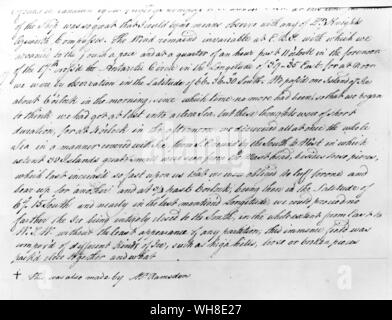 of the last was a great that I could upon means observe with any of Dr Knights
Azimuth Compasses. The Wind remained invariable at E.S.E with which we
a quarter of an hour past 11 oClock in the forenoon
of the 17th cross'd the Antarctic Circle in the Longitude of 39°35' East for at noon
we were by observation in the Latitude of 66°36'30" South. We past one Island of Ice
about 8 oClock in the morning, since which time no more had been seen so that we began
to think we had got at last into a clear Sea, but these thoughts were of short
duration, for at 4 oClock in the afternoon we discovered all at once the whole
Sea in a manner covered with Ice from SE round by the South to West in which
extent 38 Islands great & small were seen from the Mast head, besides loose pieces,
which last increased so fast upon us that we were obliged to luff for one and
bear up for another and at 3/4 past 6 oClock, being then in the Latitude of
67°15' South and nearly in the last mentioned Longitude, we could proceed no
farther the Ice being intirely closed to the South, in the whole extent from East to
W.S.W. without the least appearance of any partition, this immence field was
composed of different kinds of Ice, such as high hills, loose or broken pieces
pack'd close together and what
+ This was also made by Mr Ramsden
alamy
WH8E27